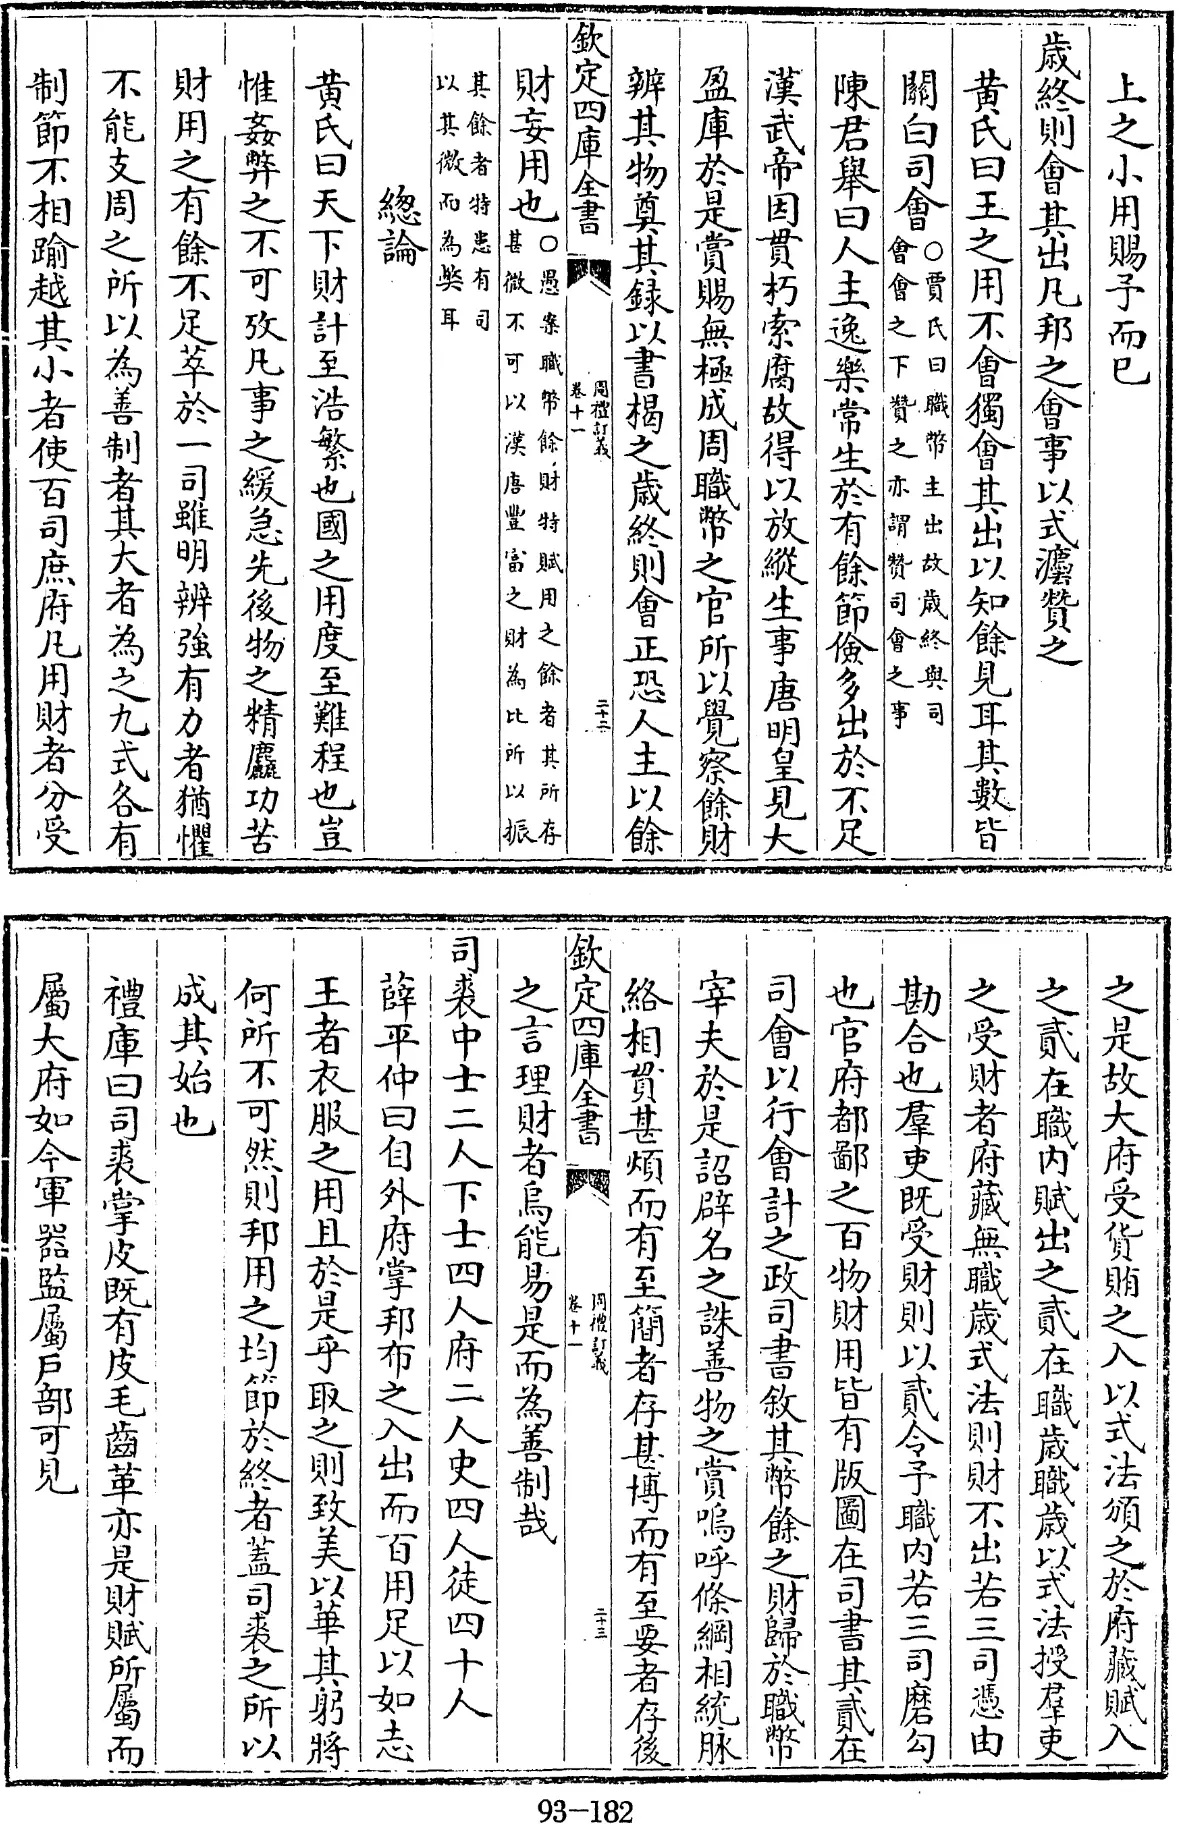 上之小用賜予而已
歲終則會其出凡邦之會事以式灋贊之
黄氏曰王之用不會獨會其出以知餘見耳其數皆
關白司會○賈氏曰職幣主出故歲終與司
會會之下贊之亦謂贊司會之事
陳君舉曰人主逸樂常生於有餘節儉多出於不足
漢武帝因貫朽索腐故得以放縱生事唐明皇見大
盈庫於是賞賜無極成周職幣之官所以覺察餘財
辨其物奠其録以書楬之歲終則會正恐人主以餘
欽定四庫全書
周禮訂義
卷十一
二十二
財妄用也○愚案職幣餘財特賦用之餘者其所存
甚微不可以漢唐豐富之財為比所以振
其餘者特恚有司
以其微而為弊耳
總論
黄氏曰天下財計至浩繁也國之用度至難程也豈
惟姦弊之不可攷凡事之緩急先後物之精麤功苦
財用之有餘不足萃於一司雖明辨強有力者猶懼
不能支周之所以為善制者其大者為之九式各有
制節不相踰越其小者使百司庶府凡用財者分受
之是故大府受貨賄之入以式法頒之於府藏賦入
之貳在職内賦出之貳在職歲職歲以式法授羣吏
之受財者府藏無職歲式法則財不出若三司憑由
勘合也羣吏既受財則以貳令予職内若三司磨勾
也官府都鄙之百物財用皆有版圖在司書其貳在
司會以行會計之政司書敘其幣餘之財歸於職幣
宰夫於是詔辟名之誅善物之賞嗚呼條綱相統脉
絡相貫甚煩而有至簡者存甚博而有至要者存後
欽定四庫全書
周禮訂義
卷十一
二十三
之言理財者烏能易是而為善制哉
司裘中士二人下士四人府二人史四人徒四十人
薛平仲曰自外府掌邦布之入出而百用足以如志
王者衣服之用且於是乎取之則致美以華其躬將
何所不可然則邦用之均節於終者蓋司裘之所以
成其始也
禮庫曰司裘掌皮既有皮毛齒革亦是財賦所屬而
屬大府如今軍器監屬戶部可見
93-182